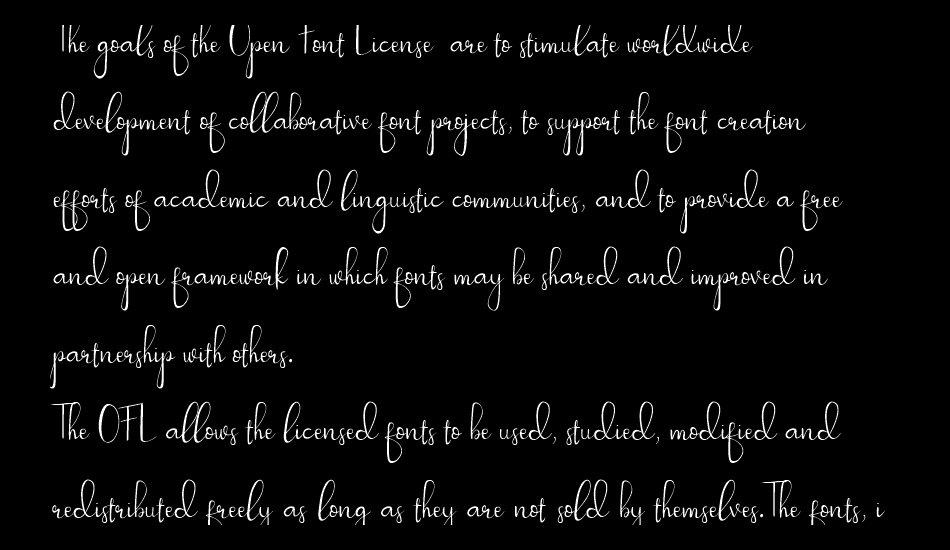 The goals of the Open Font License are to stimulate worldwide
development of collaborative font projects, to support the font creation
efforts of academic and linguistic communities, and to provide a free
and open framework in which fonts may be shared and improved in
partnership with others.
The OFL allows the licensed fonts to be used, studied, modified and
redistributed freely as long as they are not sold by themselves.The fonts, i